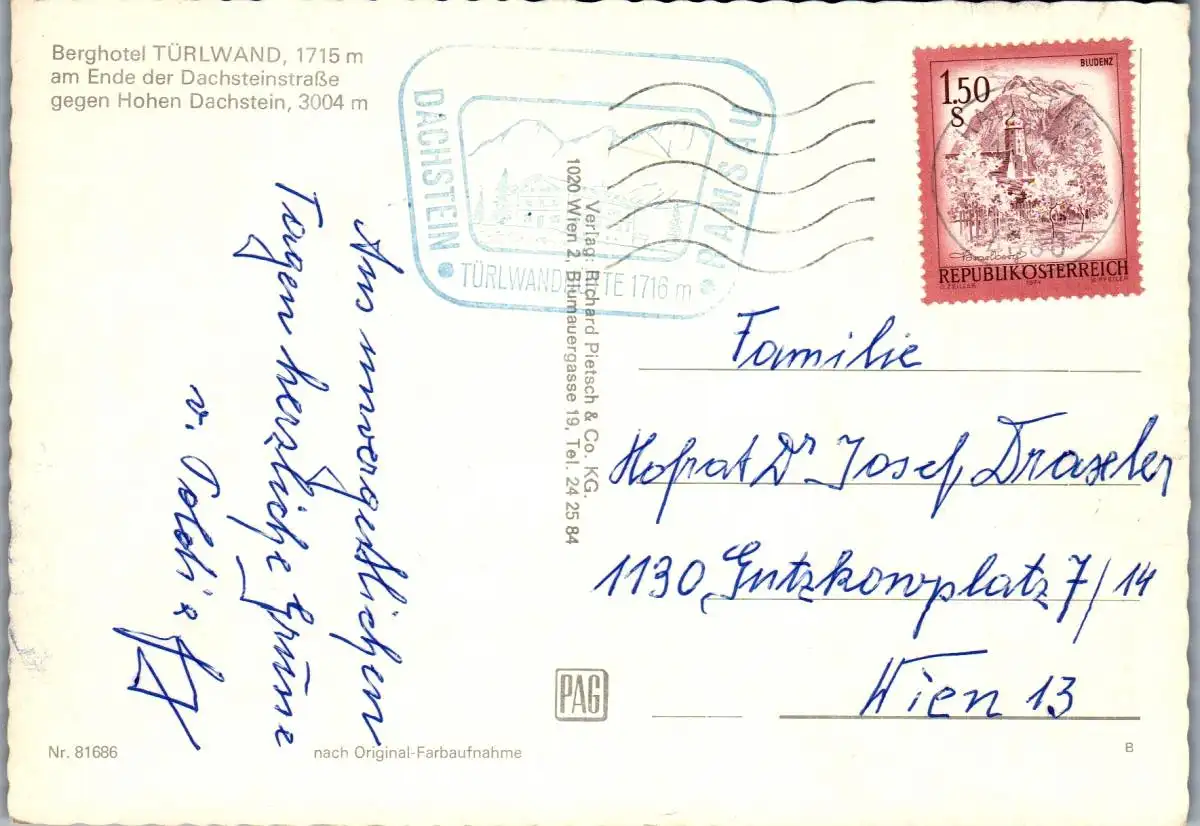 Berghotel TÜRLWAND, 1715 m
am Ende der Dachsteinstraße
gegen Hohen Dachstein, 3004 m
DACHSTEIN
RAMSAU
TÜRLWANDHÜTTE 1716 m
BLUDENZ
1.50
S
Vorarlberg
REPUBLIK ÖSTERREICH
O. ZEILLER
1974
Aus unvergeßlichen
Tagen herzliche Grüße
v. Poldi &
Verlag: Richard Pietsch & Co. KG.
1020 Wien 2, Blumauergasse 19, Tel. 24 25 84
Familie
Hofrat Dr Josef Draxler
1130 Gutzkowplatz 7/14
Wien 13
PAG
Nr. 81686
nach Original-Farbaufnahme
B